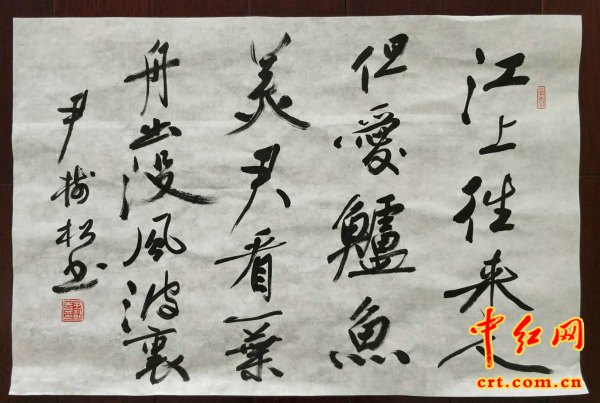 江上往来人
但愛鱸魚
美君看一葉
舟出没風波裏
尹樹松书
中红网
crt.com.cn